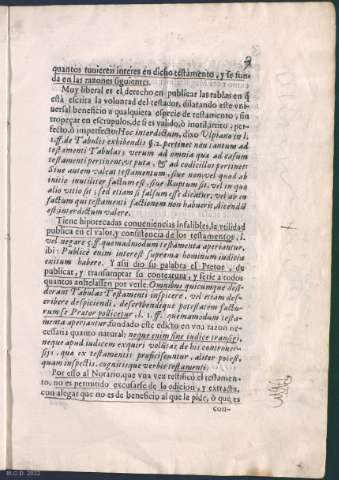 quantos tuvieren interes en dicho testamento, y se fun-
da en las razones siguientes.
Muy liberal es el derecho en publicar las tablas en q̃
està escrita la voluntad del testador, dilatando este vni-
versal beneficio a qualquiera especie de testamento, sin
tropeçar en escrupulos, de si es valido, ò inutil, irrito, per-
fecto, ò imperfecto: Hoc interdictum, dixo Vlpiano in l.
1. ff. de Tabulis exhibendis §. 2. pertinet non tantum ad
testamenti Tabulas; verum ad omnia quæ ad causam
testamenti pertinent, vt puta, & ad codicillos pertinet
Siue autem valeat testamentum, siue non, vel quod ab
initio inutiliter factum est, siue Ruptum sit, vel in quo
alio vitio sit; sed etiam si falsum esse dicatur, vel ab eo
factum qui testamenti factionem non habuerit, dicendũ
est interdictum valere.
Tiene hipotecadas conveniencias infalibles, la vtilidad
publica en el valor, y consistencia de los testamentos, l.
vel negare 5. ff. quemadmodum testamenta aperiantur,
ibi: Publicè enim interest suprema hominum iudicia
exitum habere. Y assi dio su palabra el Pretor, de
publicar, y transumptar su contextura, y serie a todos
quantos anhelassen por verle: Omnibus quicumque desi-
derant Tabulas Testamenti inspicere, vel etiam des-
cribere despiciendi, describendique potestatem factu-
rum se Prætor pollicetur, l. 1. ff. quemadmodum testa-
menta aperiantur, fundado este edicto en vna razon ne-
cessaria quanto natural; neque enim sine iudice transigi,
neque apud iudicem exquiri volūtas de his controver-
sijs, quæ ex testamentis proficiscuntur, aliter potest,
quam inspectis, cognitisque verbis testamenti.
Por esso al Notario, que vna vez testificò el testamen-
to, no es permitido escusarse de la edicion, y extracta,
con alegar que no es de beneficio al que le pide, ò que es
con-
M.C.D. 2022